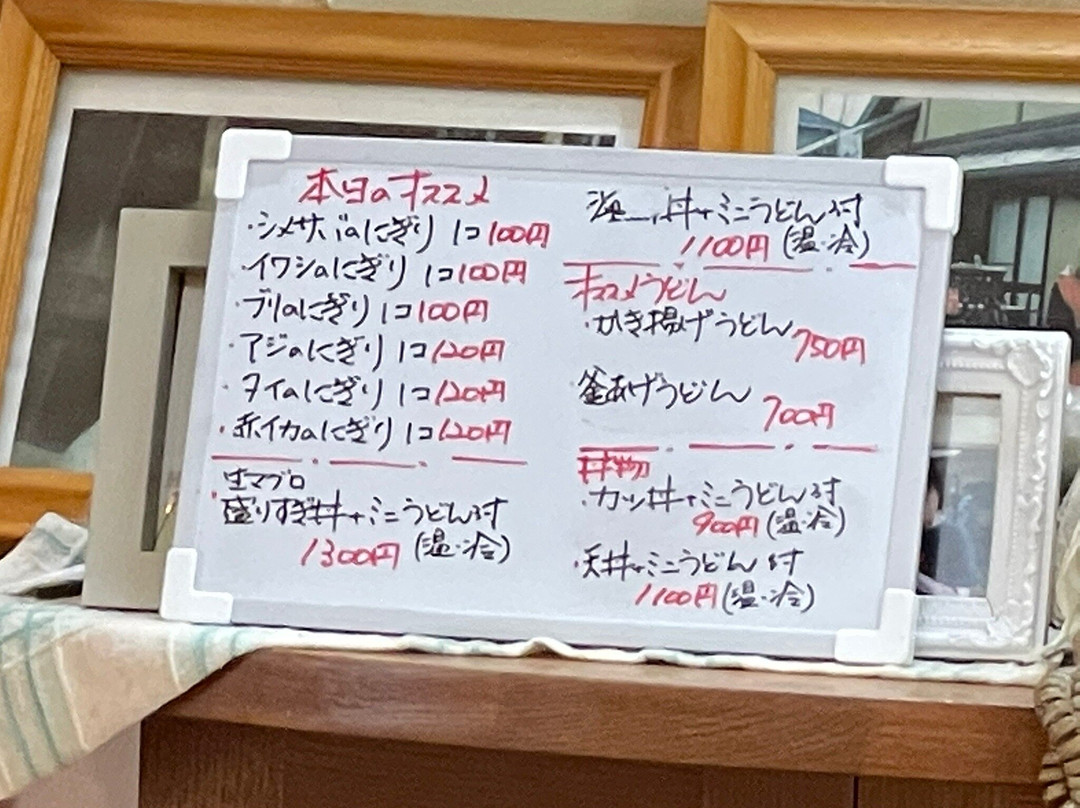 本日のオススメ
・シメサバのにぎり 1コ100円
・イワシのにぎり 1コ100円
・ブリのにぎり 1コ100円
・アジのにぎり 1コ120円
・タイのにぎり 1コ120円
・赤イカのにぎり 1コ120円
生マグロ
・盛りすぎ丼+ミニうどん付
1300円 (温・冷)
丼+ミニうどん付
1100円 (温・冷)
オススメうどん
・かき揚げうどん
750円
・釜あげうどん
700円
丼物
・カツ丼+ミニうどん付
900円 (温・冷)
・天丼+ミニうどん付
1100円 (温・冷)